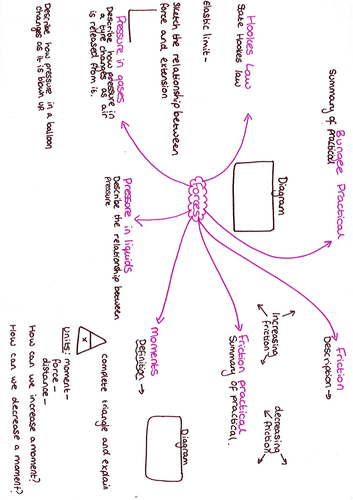 Bungee Practical
Summary of practical
Friction
Description →
Increasing
Friction
decreasing
Friction
Diagram
Hookes Law
State Hookes law
Elastic limit -
Sketch the relationship between
force and extension
Forces
Friction practical
Summary of practical.
Moments
Definition →
Diagram
x
complete triangle and explain
Units: moment -
force -
distance -
How can we increase a moment?
How can we decrease a moment?
Pressure in liquids
Describe the relationship between
Pressure
Pressure in gases
Describe how pressure in
a tyre changes as air
is released from it.
Describe how pressure in a balloon
changes as it is blown up